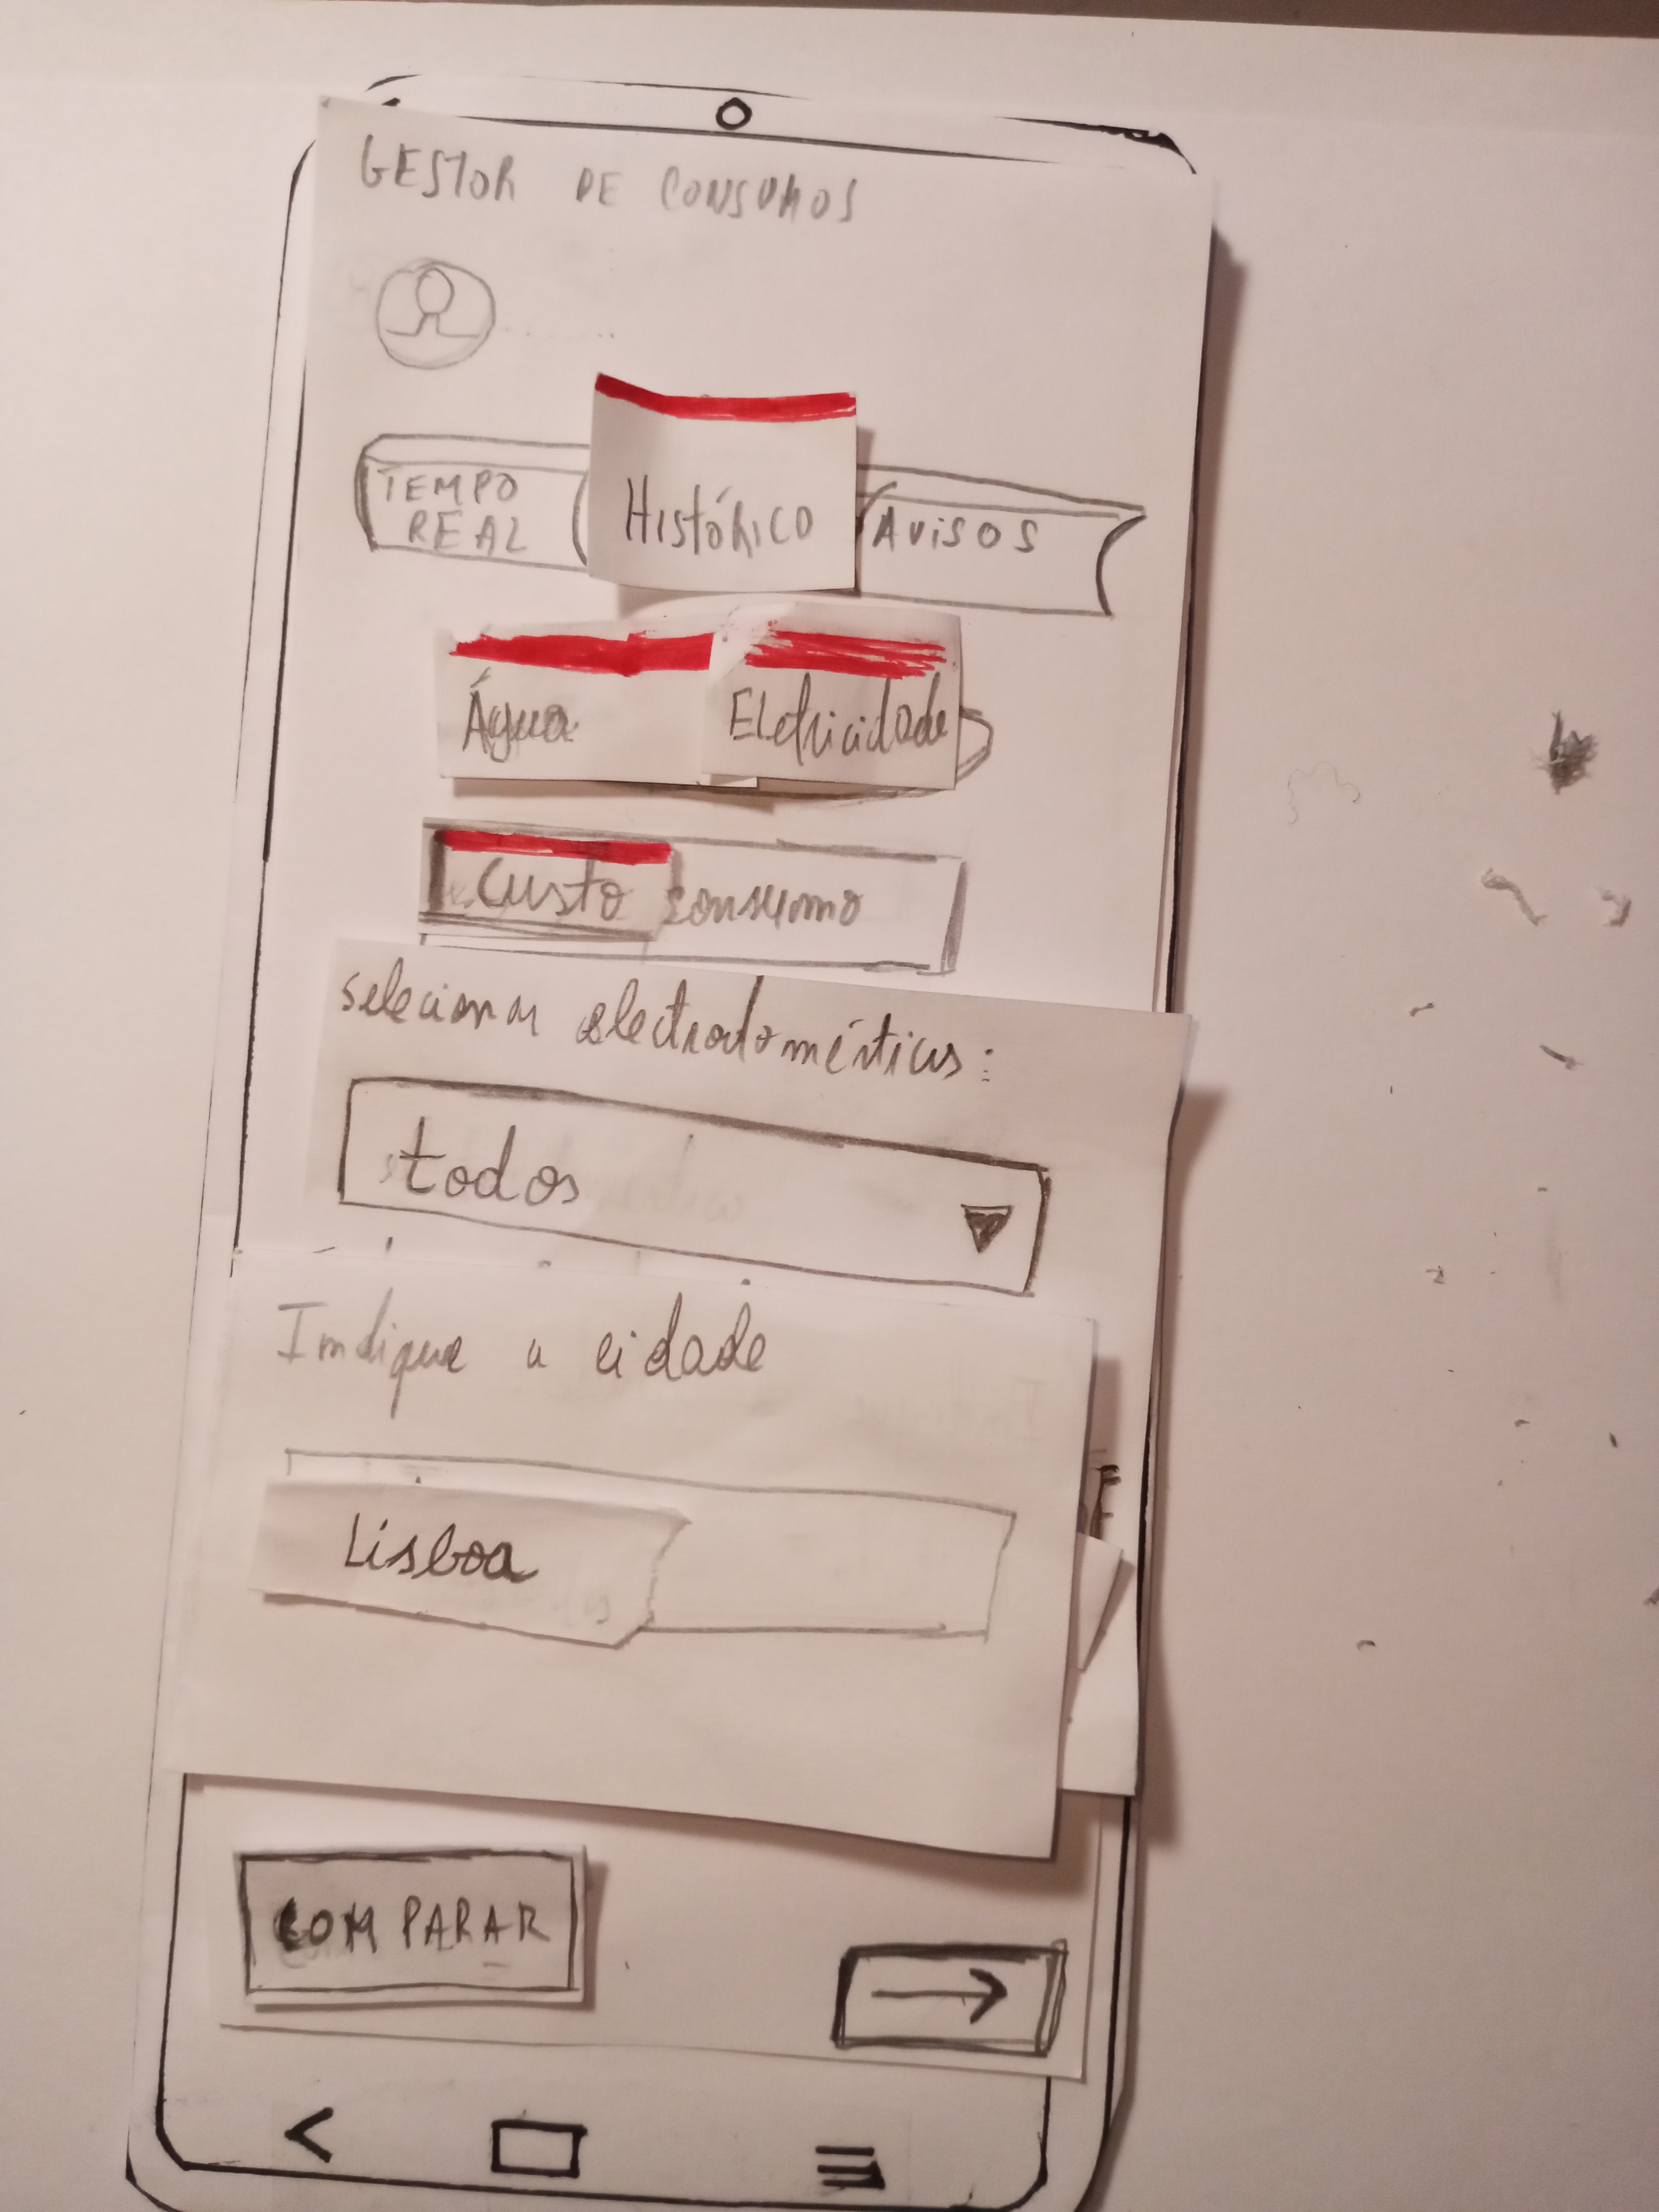 GESTOR DE CONSUMOS
TEMPO
REAL
Histórico
AVISOS
Água
Eletricidade
Custo
consumo
selecionar electrodomésticos:
todos
Indique a cidade
Lisboa
COMPARAR